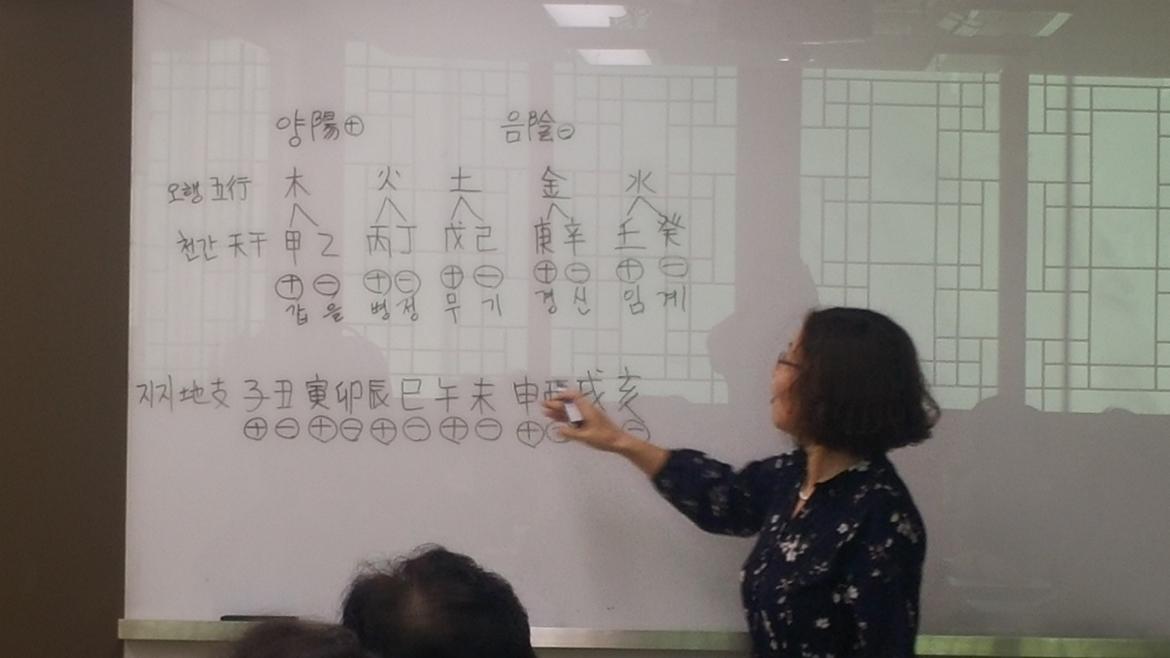 양陽⊕ 음陰⊖
오행 五行 木 火 土 金 水
천간 天干 甲 乙 丙 丁 戊 己 庚 辛 壬 癸
⊕ ⊖ ⊕ ⊖ ⊕ ⊖ ⊕ ⊖ ⊕ ⊖
갑 을 병 정 무 기 경 신 임 계
지지 地支 子 丑 寅 卯 辰 巳 午 未 申 戌 亥
⊕ ⊖ ⊕ ⊖ ⊕ ⊖ ⊕ ⊖ ⊕ ⊖